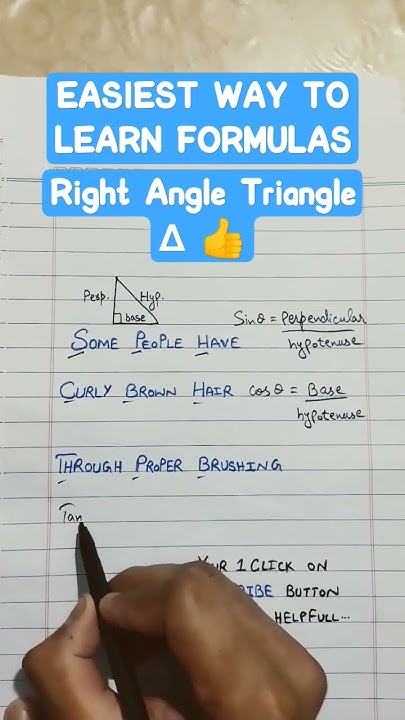 EASIEST WAY TO
LEARN FORMULAS
Right Angle Triangle
Δ 👍
Perp. Hyp.
base
Sinθ = Perpendicular
hypotenuse
SOME PEOPLE HAVE
CURLY BROWN HAIR cosθ = Base
hypotenuse
THROUGH PROPER BRUSHING
Tan
YOUR 1 CLICK ON
BUTTON
HELPFULL...